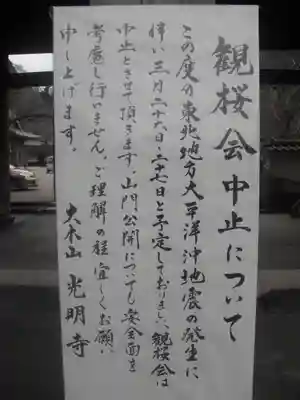 観桜会中止について
この度の東北地方太平洋沖地震の発生に
伴い三月二十六日、二十七日と予定しておりました観桜会は
中止とさせて頂きます。山門公開についても安全面を
考慮し行いません。ご理解の程宜しくお願い
申し上げます。
天木山 光明寺